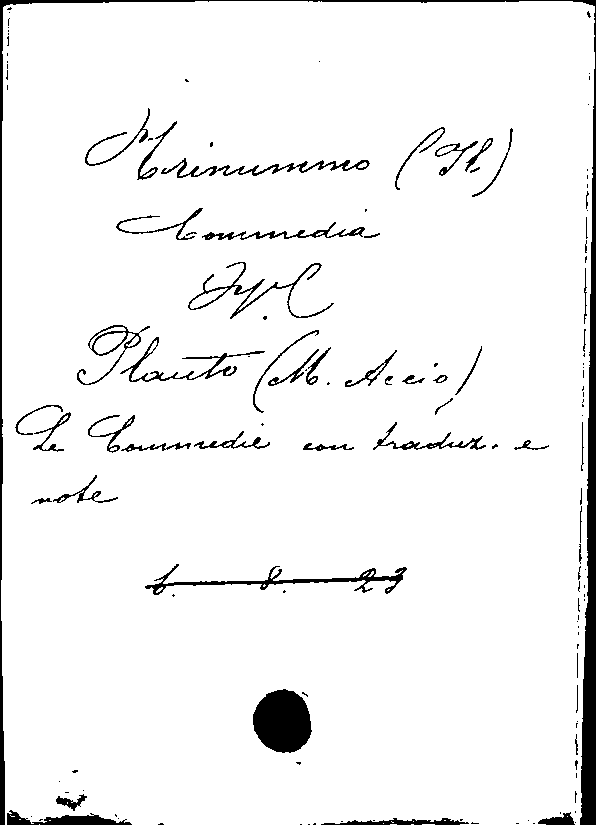 Trinummo (Il)
Commedia
Plauto (M. Accio)
Le Commedie con traduz. e
note
6. 8. 23